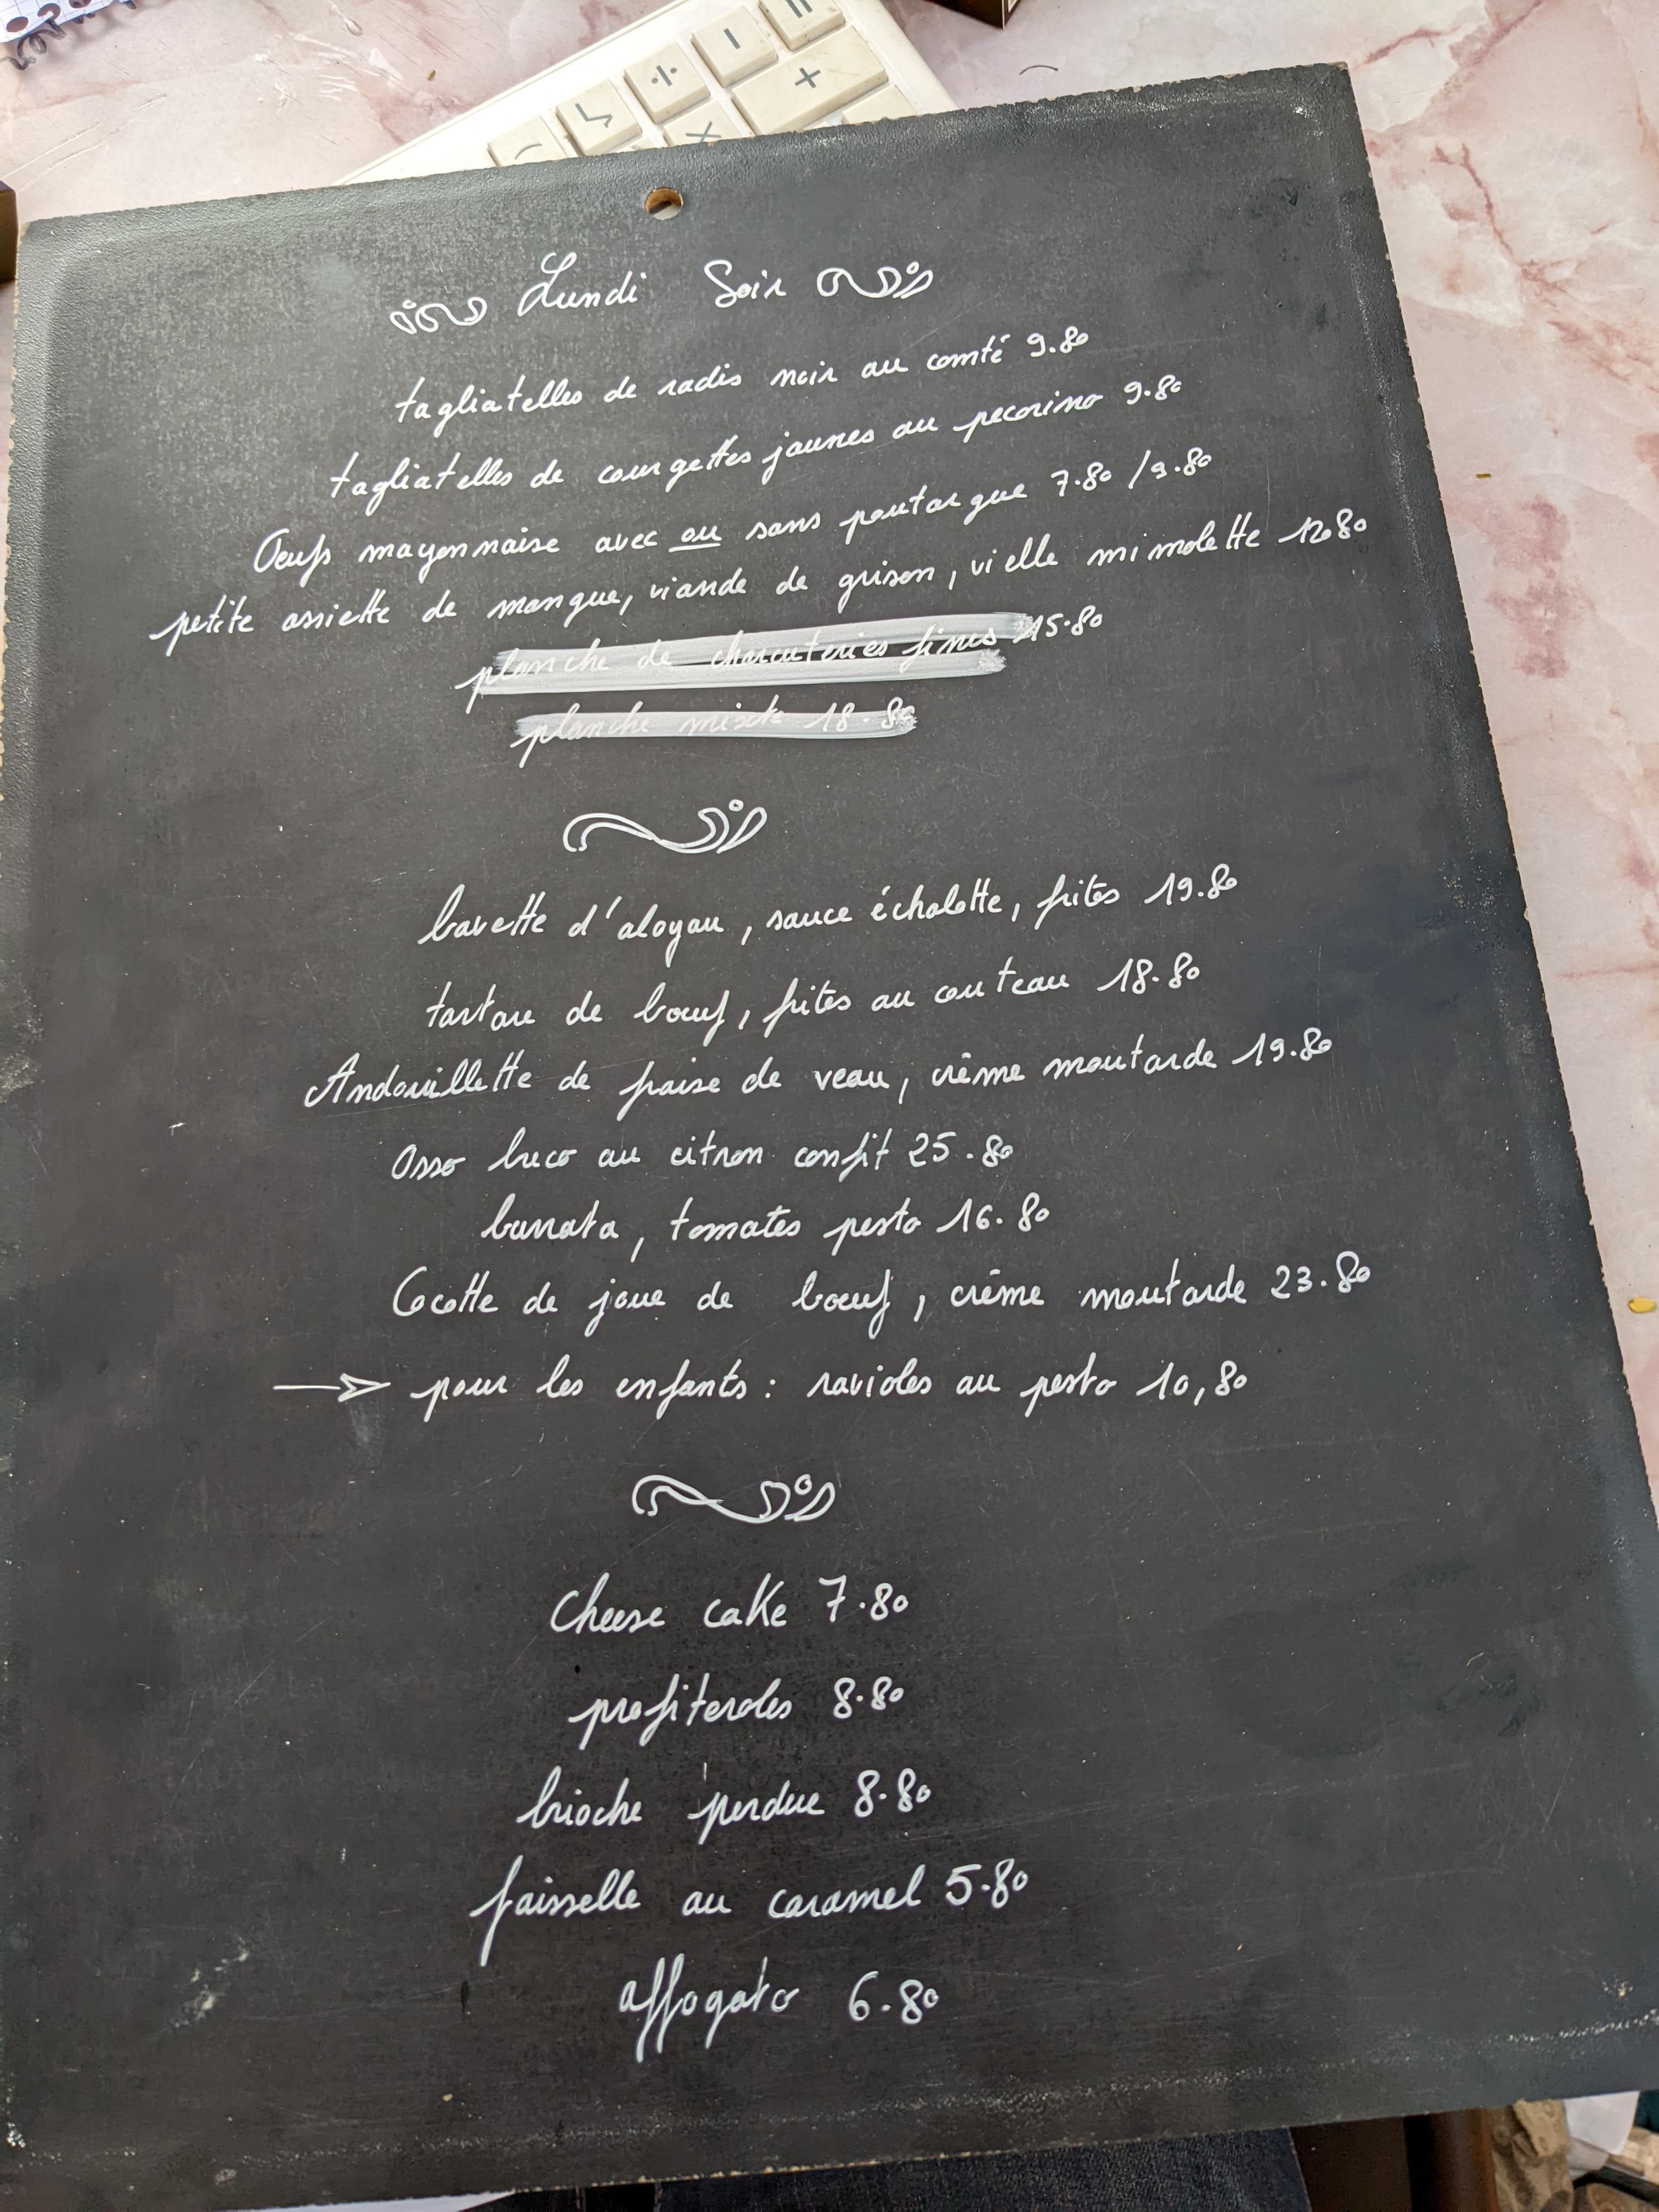 Lundi Soir
tagliatelles de radis noir au comté 9.80
tagliatelles de courgettes jaunes au pecorino 9.80
Oeufs mayonnaise avec ou sans poutargue 7.80 / 9.80
petite assiette de mangue, viande de grison, vielle mimolette 12.80
planche de charcuteries fines 15.80
planche mixte 18.80
bavette d'aloyau, sauce échalotte, frites 19.80
tartare de bœuf, frites au couteau 18.80
Andouillette de fraise de veau, crème moutarde 19.80
Osso buco au citron confit 25.80
burrata, tomates pesto 16.80
Cocotte de joue de bœuf, crème moutarde 23.80
→ pour les enfants : ravioles au pesto 10,80
cheese cake 7.80
profiteroles 8.80
brioche perdue 8.80
faisselle au caramel 5.80
affogato 6.80